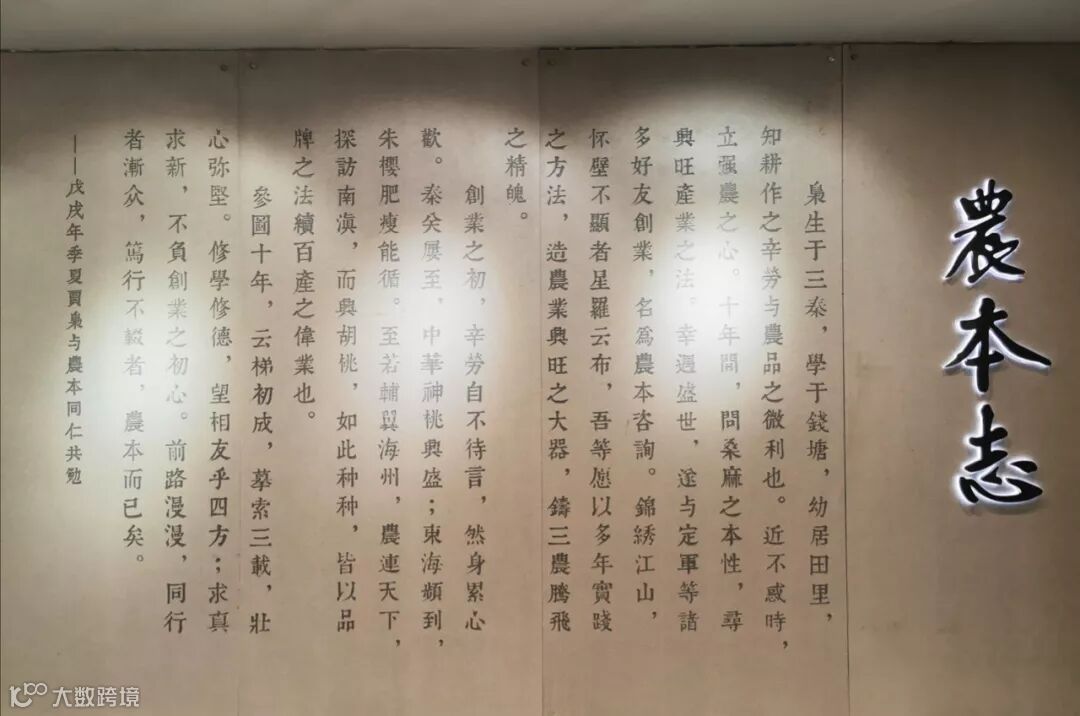 農本志
梟生于三秦，學于錢塘，幼居田里，
知耕作之辛勞与農品之微利也。近不惑時，
立强農之心。十年間，問桑麻之本性，尋
興旺產業之法。幸遇盛世，遂与定軍等諸
多好友創業，名爲農本咨詢。錦綉江山，
怀壁不顯者星羅云布，吾等愿以多年實踐
之方法，造農業興旺之大器，鑄三農騰飛
之精魄。
創業之初，辛勞自不待言，然身累心
歡。秦关屢至，中華神桃興盛；東海頻到，
朱櫻肥瘦能循。至若輔翼海州，農連天下，
探訪南滇，而興胡桃，如此种种，皆以品
牌之法續百產之偉業也。
參圖十年，云梯初成，摹索三載，壯
心弥堅。修學修德，望相友乎四方；求真
求新，不負創業之初心。前路漫漫，同行
者漸众，篤行不輟者，農本而已矣。
——戊戌年季夏賈梟与農本同仁共勉
大数跨境